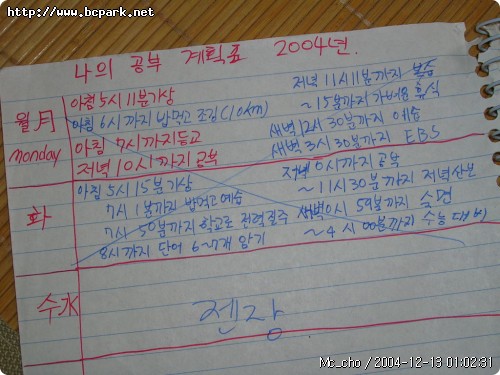 www.bcpark.net
나의 공부 계획표 2004년.
월 月
monday
아침 5시 11분 기상
아침 6시 까지 밥먹고 조깅(10km)
아침 7시까지 등교
저녁 10시까지 공부
저녁 11시 11분까지 복습
~15분까지 가벼운 휴식
새벽 12시 30분까지 예습
새벽 3시 30분까지 EBS
화
아침 5시 15분 기상
7시 1분까지 밥먹고 예습
7시 50분까지 학교로 전력질주
8시까지 단어 6~7개 암기
저녁 10시까지 공부
~11시 30분까지 저녁산보
새벽 0시 59분까지 숙면
~4시 00분까지 수능대비
수 水
젠장
Mc_cho / 2004-12-13 01:02:31